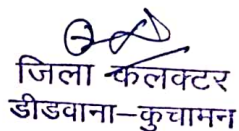 जिला कलक्टर
डीडवाना–कुचामन